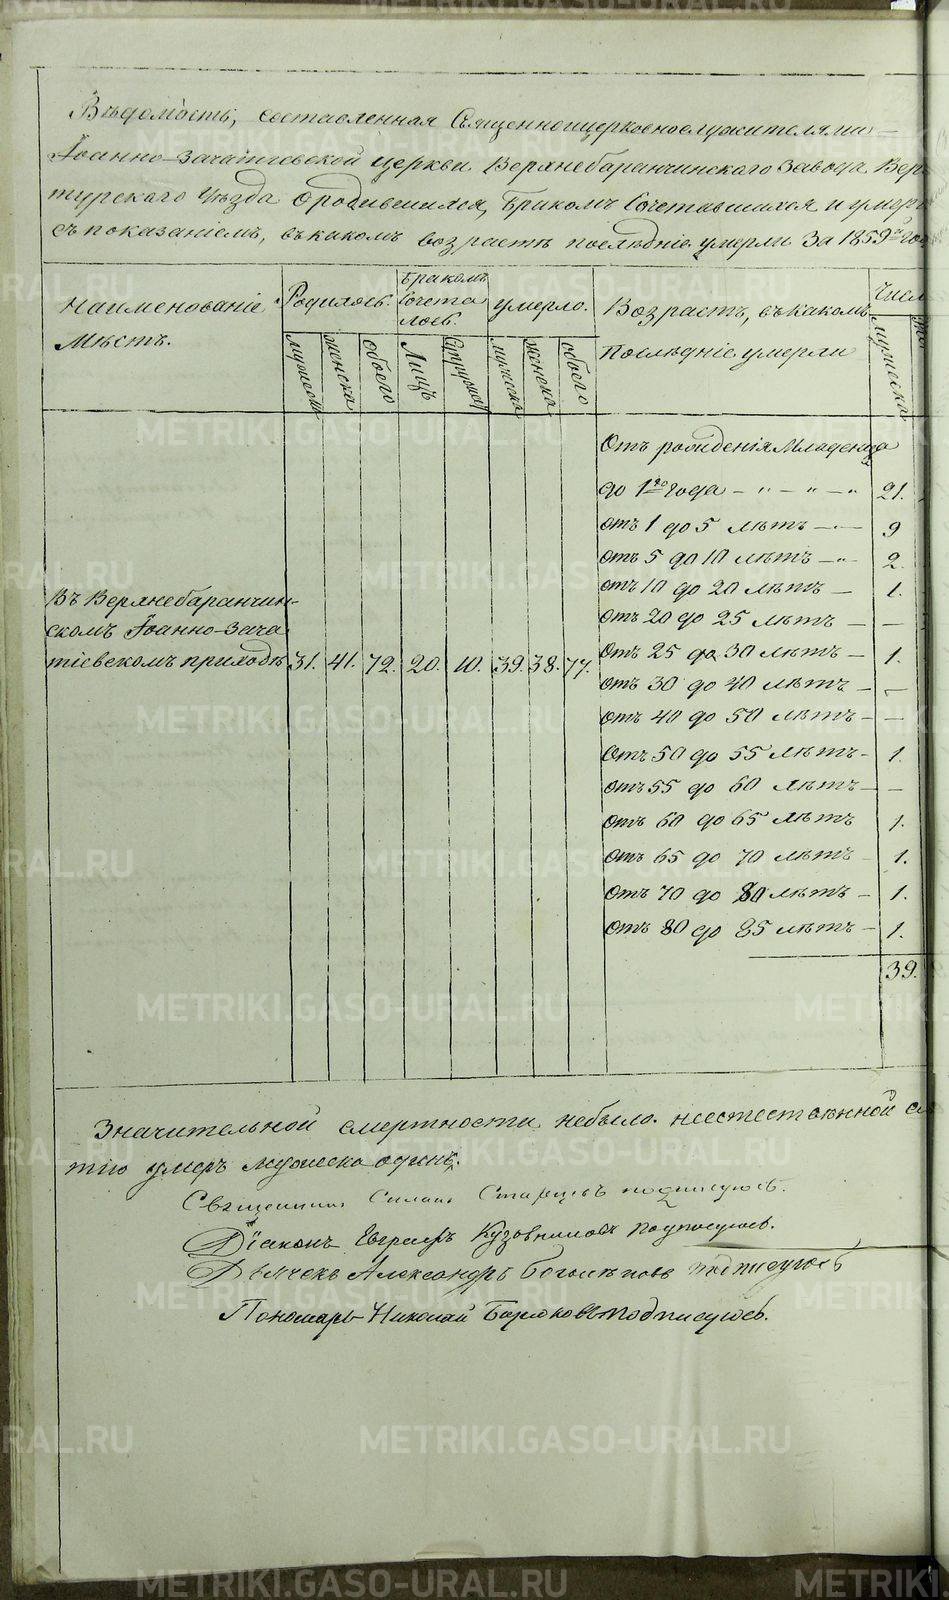 Вѣдомость, составленная Священноцерковнослужителями
Іоанно-Зачатіевской церкви Верхнебаранчинскаго Завода, Верх
турскаго Уѣзда о родившихся, Бракомъ Сочетавшихся и умерш
съ показаніемъ, въ какомъ возрастѣ послѣдніе умерли За 1859й год
Наименованіе
Мѣстъ.
Родилось.
Бракомъ
Сочета
лось.
умерло.
Возрастъ, въ какомъ
Послѣдніе умерли
Числ
мужеска
женска
обоего
Лицъ
мужеска
женска
обоего
мужеска
Отъ рожденія Младенца
до 1го года - " - " - " 21.
отъ 1 до 5 лѣтъ - " - 9
отъ 5 до 10 лѣтъ - " 2.
отъ 10 до 20 лѣтъ - 1.
отъ 20 до 25 лѣтъ - -
отъ 25 до 30 лѣтъ - 1.
отъ 30 до 40 лѣтъ - -
отъ 40 до 50 лѣтъ - -
отъ 50 до 55 лѣтъ - 1.
отъ 55 до 60 лѣтъ - -
отъ 60 до 65 лѣтъ 1.
отъ 65 до 70 лѣтъ - 1.
отъ 70 до 80 лѣтъ - 1.
отъ 80 до 85 лѣтъ - 1.
39.
Въ Верхнебаранчин-
скомъ Іоанно-Зача
тіевскомъ приходѣ 31. 41. 72. 20. 10. 39. 38. 77.
Значительной смертности небыло. неестественной см
тію умеръ мужеска одинъ.
Священникъ Старцевъ подписуюсь.
Діаконъ Кузовниковъ подписуюсь.
Дьячекъ Александръ Боголѣповъ подписуюсь
Пономарь Николай подписуюсь.
METRIKI.GASO-URAL.RU